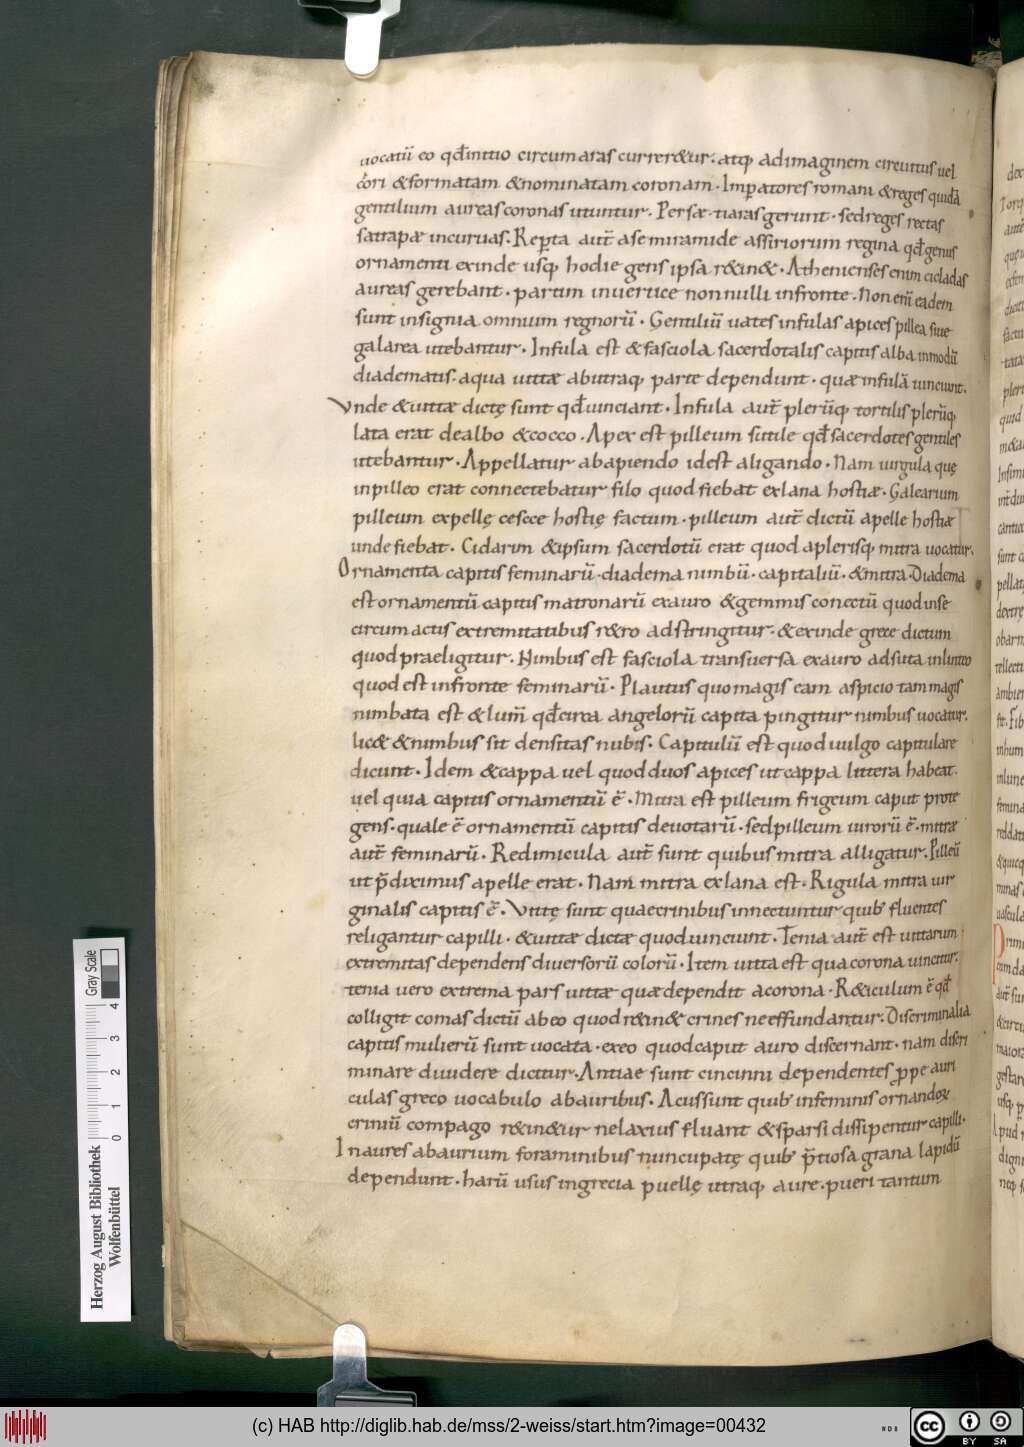 uocatū eo qđ initio circum aras curreretur. atq; ad imaginem circuitus uel
cori & formatam & nominatam coronam. Imperatores romani & reges quidā
gentilium aureas coronas utuntur. Persæ tiaras gerunt. sed reges rectas
satrapæ incuruas. Reperta aut̄ a semiramide assiriorum regina qđ genus
ornamenti exinde usq; hodie gens ipsa r&in&. Athenienses enim cicladas
aureas gerebant. partim in uertice nonnulli in fronte. Non eni eadem
sunt insignia omnium regnorū. Gentiliū uates infulas apices pillea siue
galarea utebantur. Infula est & fasciola sacerdotalis capitis alba in modū
diadematis. a qua uittæ ab utraq; parte dependunt. quæ infulā uinciunt.
Vnde & uittæ dictę sunt qđ uinciant. Infula aut̄ plerūq; tortilis plerūq;
lata erat de albo & cocco. Apex est pilleum sutile qđ sacerdotes gentiles
utebantur. Appellatur ab apiendo id est a ligando. Nam uirgula quę
in pilleo erat connectebatur filo quod fiebat ex lana hostiæ. Galearium
pilleum ex pellę cesece hostię factum. pilleum aut̄ dictū a pelle hostiæ
unde fiebat. Cidarim & ipsum sacerdotū erat quod a plerisq; mitra uocatur.
Ornamenta capitis feminarū. diadema nimbū. capitaliū. & mitra. Diadema
est ornamentū capitis matronarū ex auro & gemmis conectū quod in se
circum actis extremitatibus r&ro adstringitur. & exinde grece dictum
quod praeligitur. Nimbus est fasciola transuersa ex auro adsuta in linteo
quod est in fronte feminarū. Plautus quo magis eam aspicio tam magis
nimbata est & lum̄ qđ circa angelorū capita pingitur nimbus uocatur.
lic& & nimbus sit densitas nubis. Capitulū est quod uulgo capitulare
dicunt. Idem & cappa uel quod duos apices ut cappa littera habeat.
uel quia capitis ornamentū ē. Mitra est pilleum frigeum caput prote
gens. quale ē ornamentū capitis deuotarū. sed pilleum uirorū ē. mitræ
aut̄ feminarū. Redimicula aut̄ sunt quibus mitra alligatur. Pilleū
ut p̄diximus a pelle erat. Nam mitra ex lana est. Rigula mitra uir
ginalis capitis ē. Vittę sunt quae crinibus innectuntur quib; fluentes
religantur capilli. & uittæ dictæ quod uinciunt. Tenia aut̄ est uittarum
extremitas dependens diuersorū colorū. Item uitta est qua corona uincitur.
tenia uero extrema pars uittæ quæ dependit a corona. R&iculum ē qđ
colligit comas dictū ab eo quod r&in& crines ne effundantur. Discriminalia
capitis mulierū sunt uocata. ex eo quod caput auro discernant. nam discri
minare diuidere dicitur. Antiae sunt cincinni dependentes ꝓpe auri
culas greco uocabulo ab auribus. Acus sunt quib; in feminis ornandoꝝ
criniū compago r&in&ur ne laxius fluant & sparsi dissipentur capilli.
Inaures ab aurium foraminibus nuncupatę quib; p̄tiosa grana lapidū
dependunt. harū usus in grecia puellę utraq; aure. pueri tantum
Herzog August Bibliothek
Wolfenbüttel
0 1 2 3 4
Gray Scale
(c) HAB http://diglib.hab.de/mss/2-weiss/start.htm?image=00432
cc BY SA